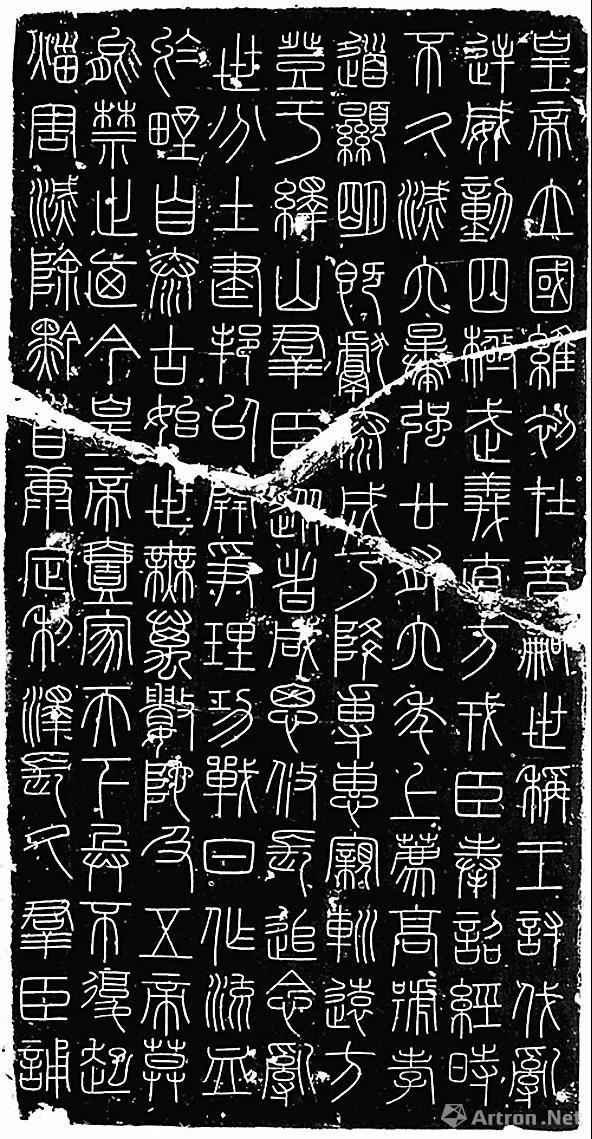 皇帝立國維初在昔嗣世稱王討伐亂
逆威動四極武義直方戎臣奉詔經時
不久滅六暴強廿有六年上薦高號孝
道顯明既獻泰成乃降專惠親巡遠方
登于繹山羣臣從者咸思攸長追念亂
世分土建邦以開爭理功戰日作流血
於野自泰古始世無萬數陀及五帝莫
能禁止廼今皇帝壹家天下兵不復起
災害滅除黔首康定利澤長久羣臣誦
Artron.Net